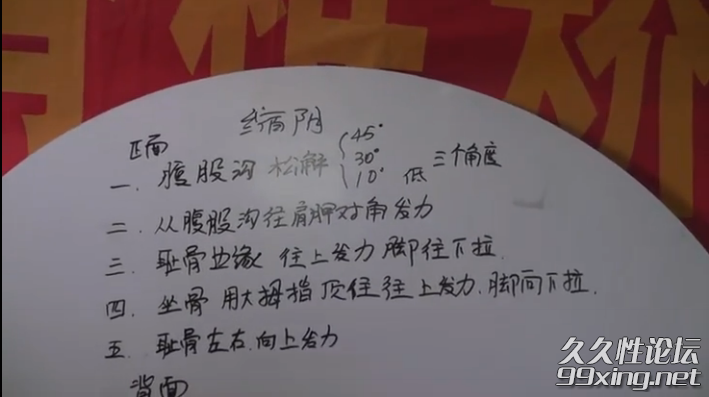 缩阴
正面
一、腹股沟 松解 45° 30° 10° 低 三个角度
二、从腹股沟往肩胛对角发力
三、耻骨边缘 往上发力 脚往下拉.
四、坐骨 用大拇指顶住往上发力、脚向下拉.
五、耻骨左右,向上发力
背面
久久性论坛
99xing.net